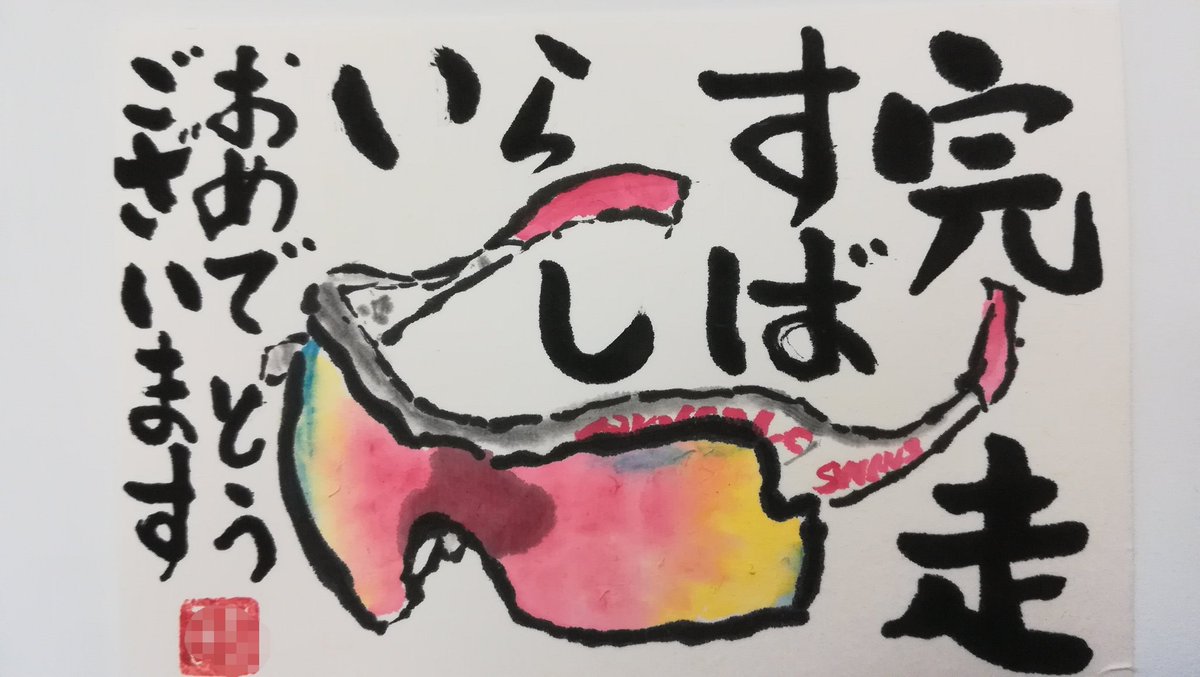 完走
すばらしい
おめでとう
ございます
SWANS